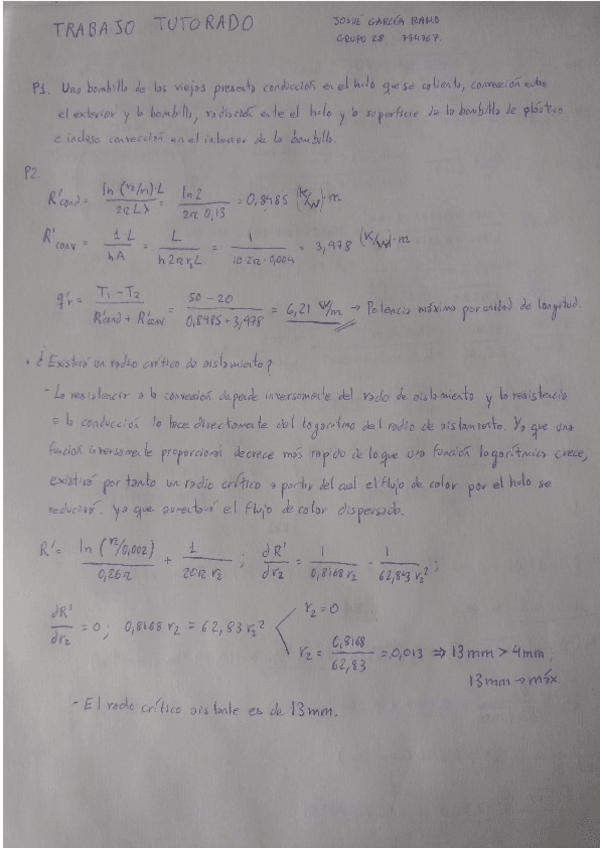 TRABAJO TUTORADO
JOSUÉ GARCÍA RAMO
GRUPO 28 794767
P1. Una bombilla de las viejas presenta conducción en el hilo que se calienta, convección entre
el exterior y la bombilla, radiación ente el hilo y la superficie de la bombilla de plástico
e incluso convección en el interior de la bombilla.
P2.
R'cond = ln(r2/r1)·L / 2πLλ = ln 2 / 2π 0,13 = 0,8485 (K/W)·m
R'conv = 1·L / hA = L / h 2π r2 L = 1 / 10·2π·0,004 = 3,978 (K/W)·m
q'r = T1 - T2 / R'cond + R'conv = 50 - 20 / 0,8485 + 3,978 = 6,21 W/m → Potencia máxima por unidad de longitud.
• ¿Existirá un radio crítico de aislamiento?
- La resistencia a la convección depende inversamente del radio de aislamiento y la resistencia
a la conducción lo hace directamente del logaritmo del radio de aislamiento. Ya que una
función inversamente proporcional decrece más rapido de lo que una función logarítmica crece,
existirá por tanto un radio crítico a partir del cual el flujo de calor por el hilo se
reducirá. ya que aumentará el flujo de calor dispersado.
R' = ln(r2/0,002) / 0,26π + 1 / 20π r2 ; ∂R'/∂r2 = 1 / 0,8168 r2 - 1 / 62,843 r2² ;
∂R'/∂r2 = 0 ; 0,8168 r2 = 62,83 r2²
r2 = 0
r2 = 0,8168 / 62,83 = 0,013 ⇒ 13 mm > 4 mm,
13 mm → máx.
- El radio crítico aislante es de 13 mm.